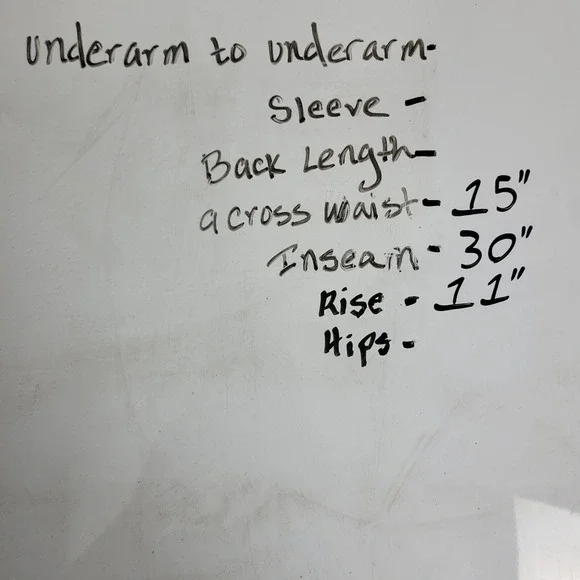 underarm to underarm-
Sleeve -
Back Length-
across waist- 15"
Inseam - 30"
Rise - 11"
Hips -